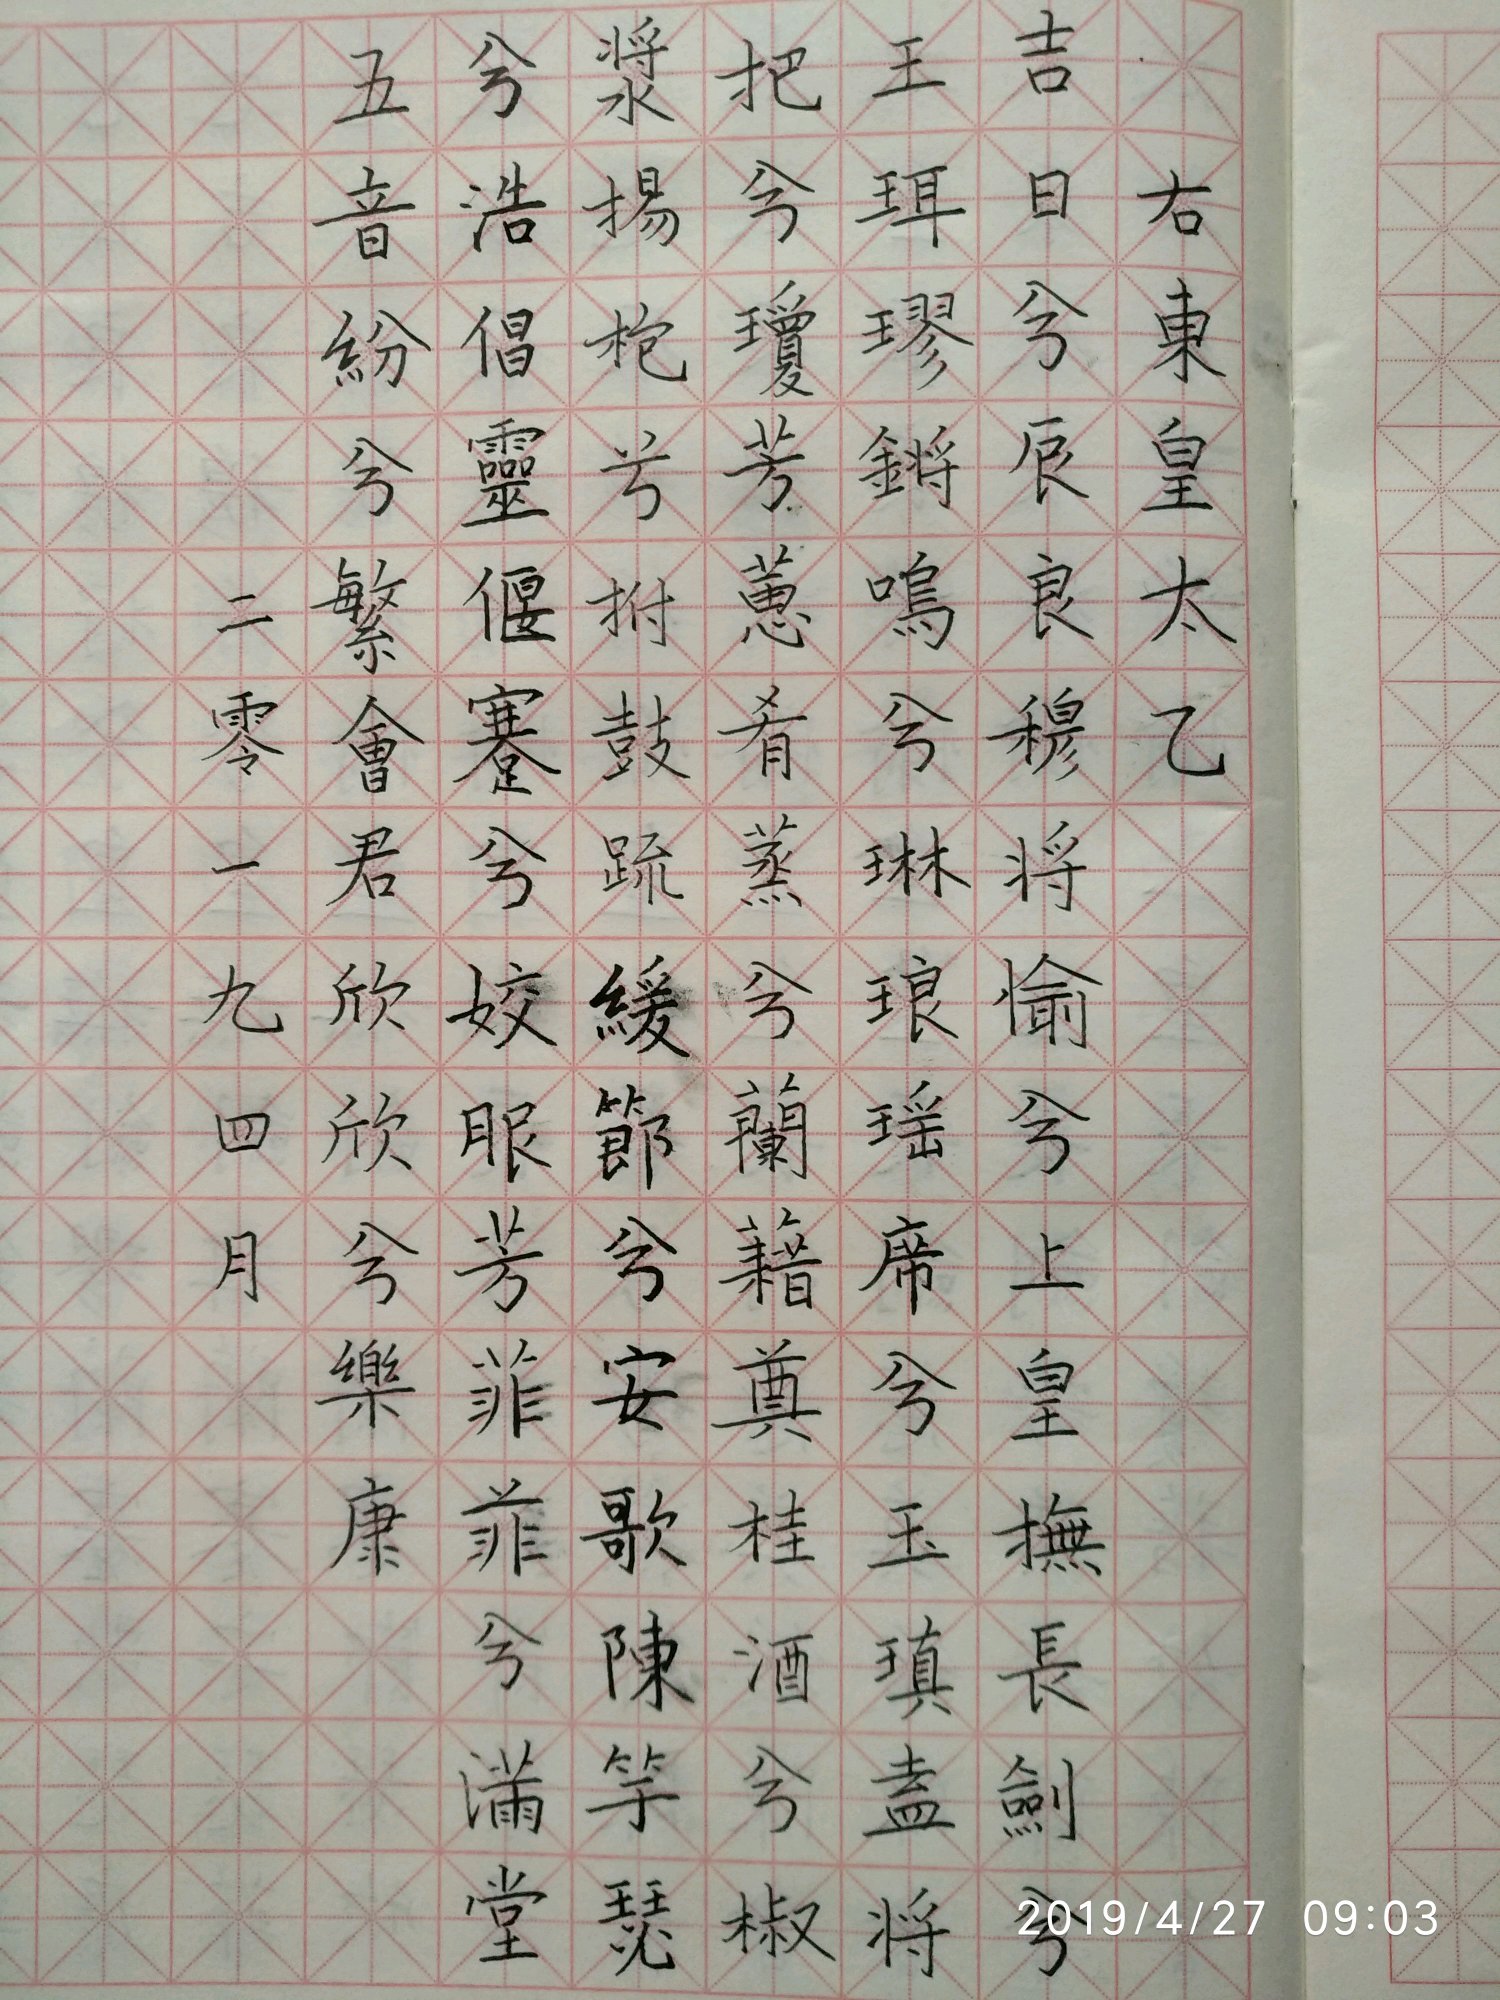 右東皇太乙
吉日兮辰良穆将愉兮上皇撫長劍兮
王珥璆鏘鳴兮琳琅瑶席兮玉瑱盍将
把兮瓊芳蕙肴蒸兮蘭藉奠桂酒兮椒
漿揚枹兮拊鼓疏緩節兮安歌陳竽瑟
兮浩倡靈偃蹇兮姣服芳菲菲兮滿堂
五音紛兮繁會君欣欣兮樂康
二零一九四月
2019/4/27 09:03